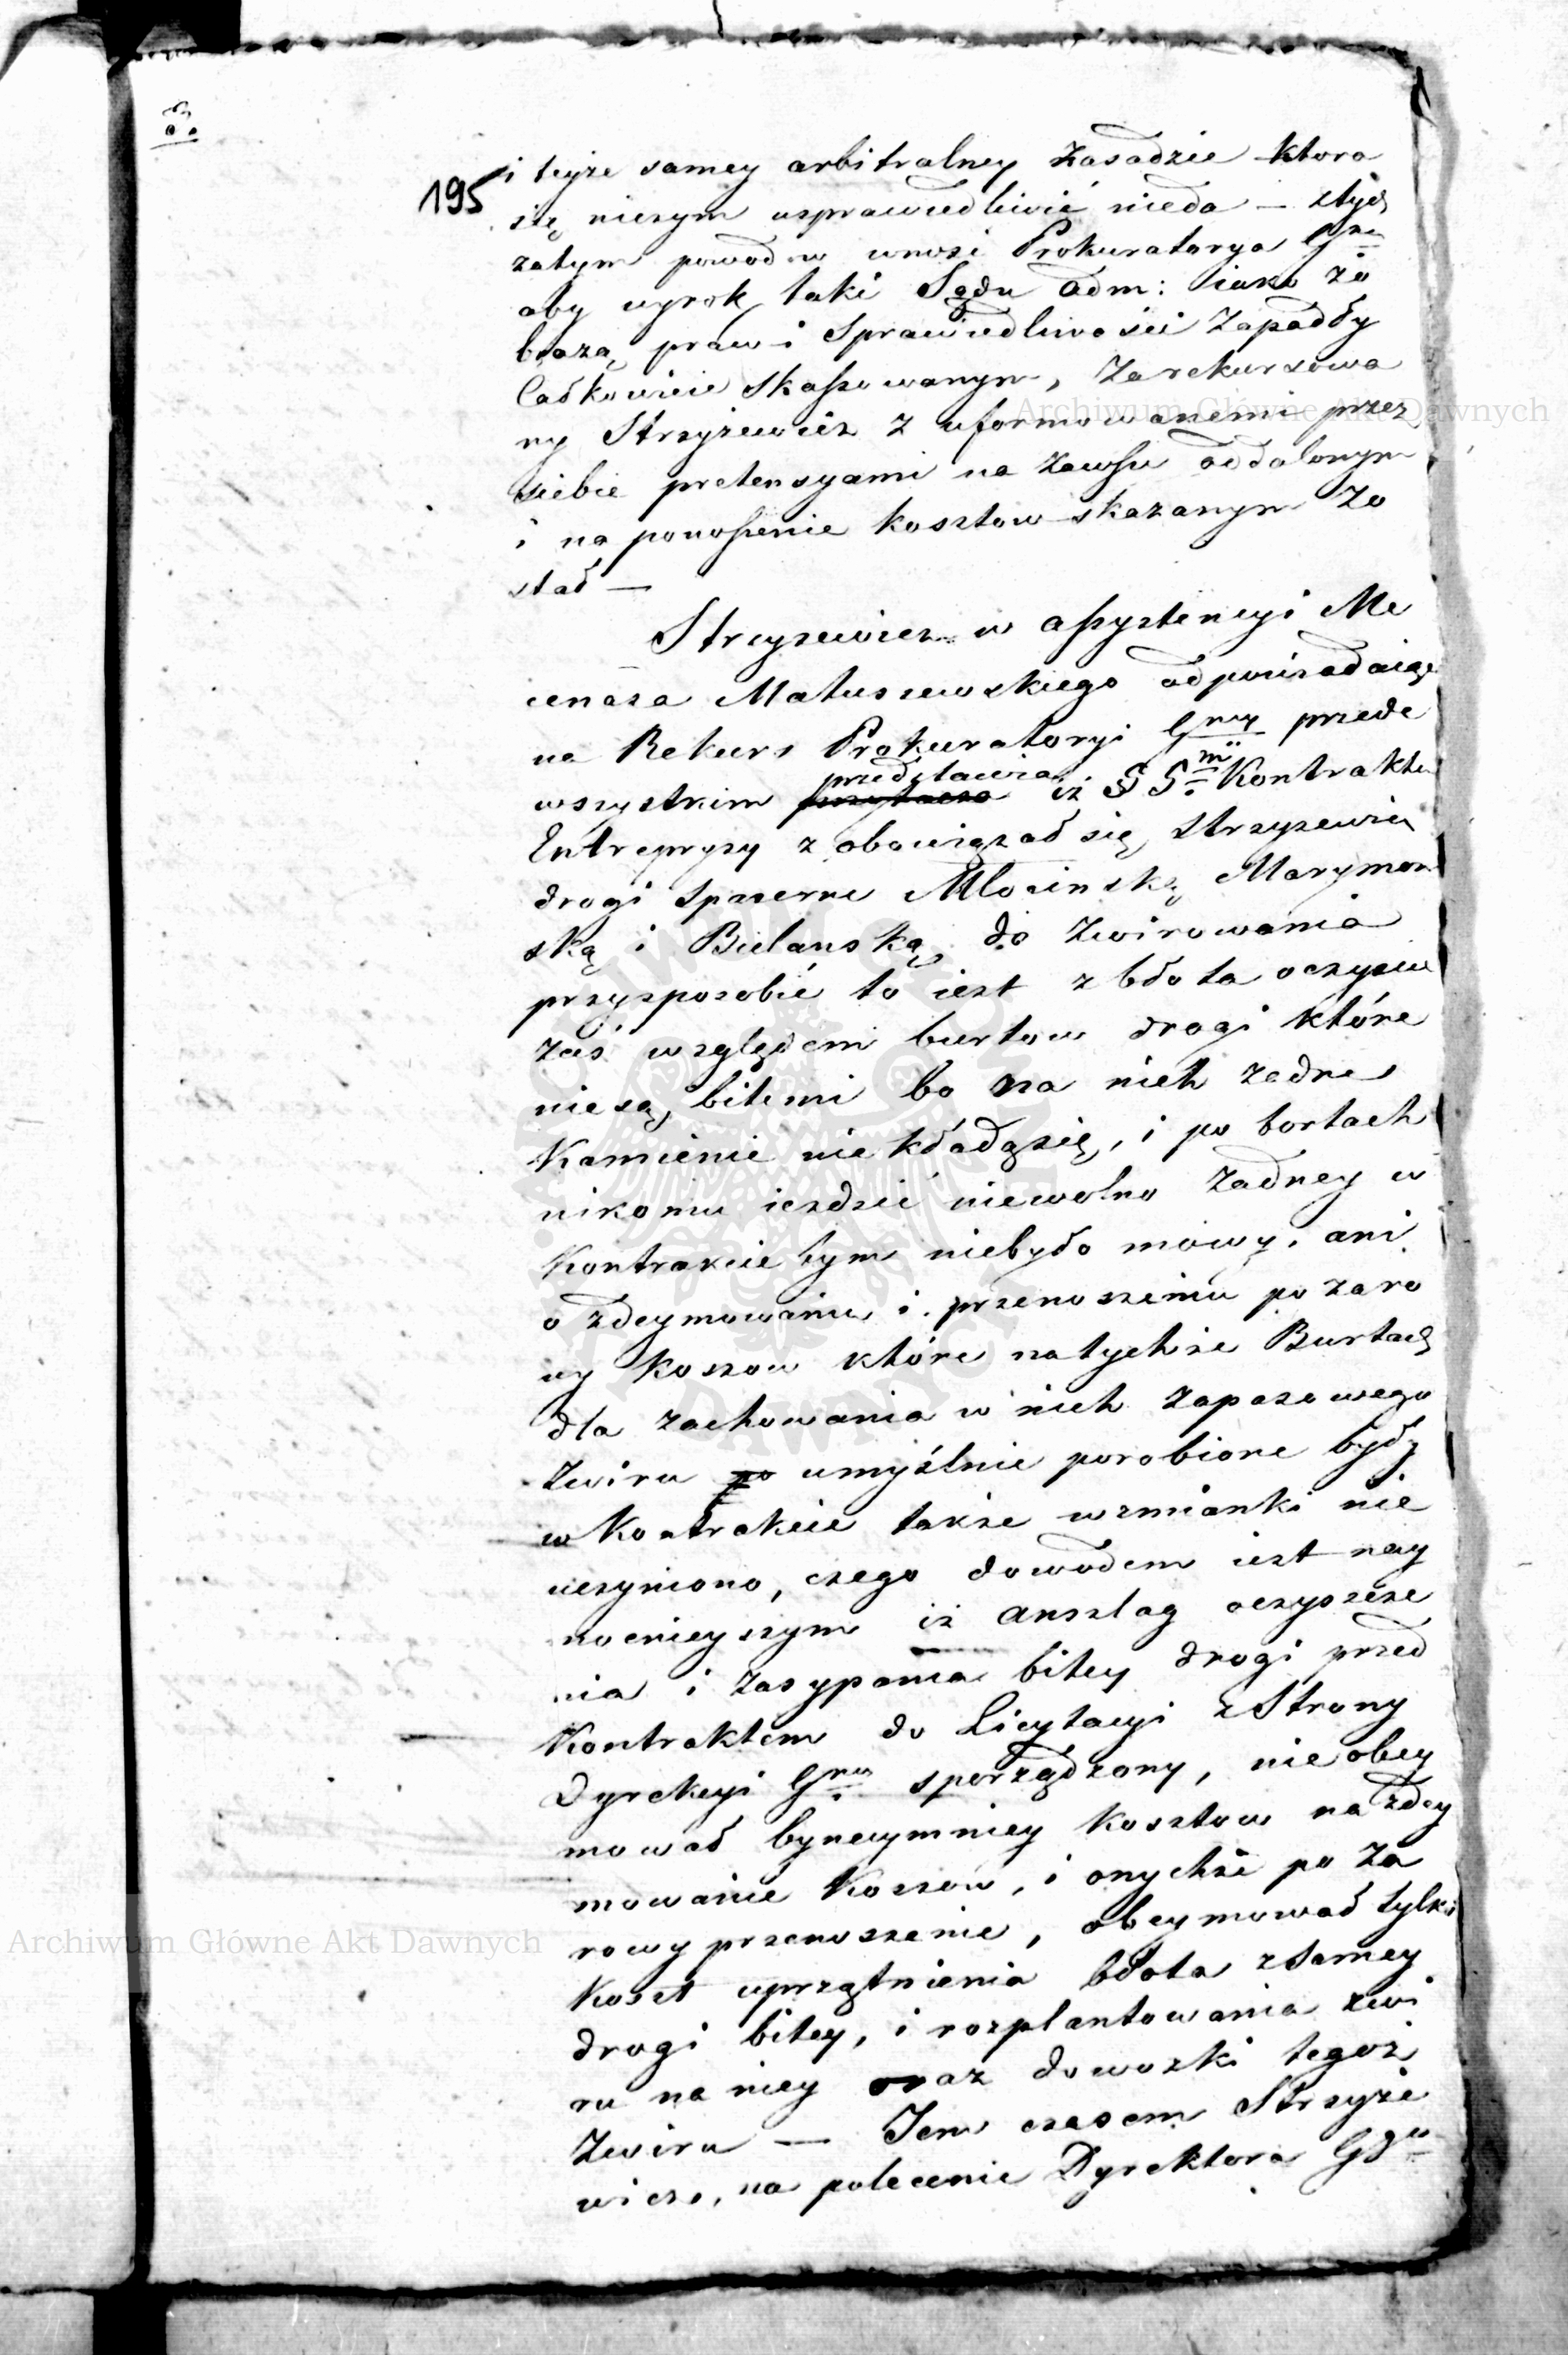 195
i teyże samey arbitralney zasadzie ktora
się niczym usprawiedliwić nieda — z tych
zatym powodów wnosi Prokuratorya Gna
aby wyrok taki Sądu Adm: iako z o
brazą praw i Sprawiedliwości zapadły
Całkowicie skassowanym, Zarekursowa
ny Strzyżewicz z uformowanemi przez
siebie pretensyami na zawsze oddalonym
i na ponoszenie kosztow skazanym zo
stał —
Strzyżewicz w assystencyi Me
cenasa Matuszewskiego odpowiadaiąc
na Rekurs Prokuratoryi Gney przede
wszystkim przedstawia iż § 5m Kontraktu
Entrepryzy zobowiązał się Strzyżewicz
drogi Spacerne Młocinską Marymon
ską i Bielanską do żwirowania
przysposobić to iest z błota oczyścić
zaś względem burtow drogi które
nie są bitemi bo na nich żadne
Kamienie nie kładą się, i po bortach
nikomu ieździć niewolno żadney w
Kontrakcie tym niebyło mowy. ani
o zdeymowaniu i przenoszeniu po za ro
wy koszow które na tychże Burtach
dla zachowania w nich zapasowego
Żwiru po umyślnie porobione były
w Kontrakcie także wzmianki nie
uczyniono, czego dowodem iest nay
mocnieyszym iż Anszlag oczyszcze
nia i zasypania bitey drogi przed
Kontraktem do Licytacyi z Strony
Dyrekcyi Gney sporządzony, nie obey
mował bynaymniey kosztow na zdey
mowanie Koszow, i onychże po za
rowy przenoszenie, obeymował tylko
Koszt uprzątnienia błota z samey
drogi bitey, i rozplantowania żwi
ru na niey oraz dowozki tegoż
Żwiru — Tem czasem Strzyże
wicz, na polecenie Dyrektora Ggo
Archiwum Główne Akt Dawnych
Archiwum Główne Akt Dawnych